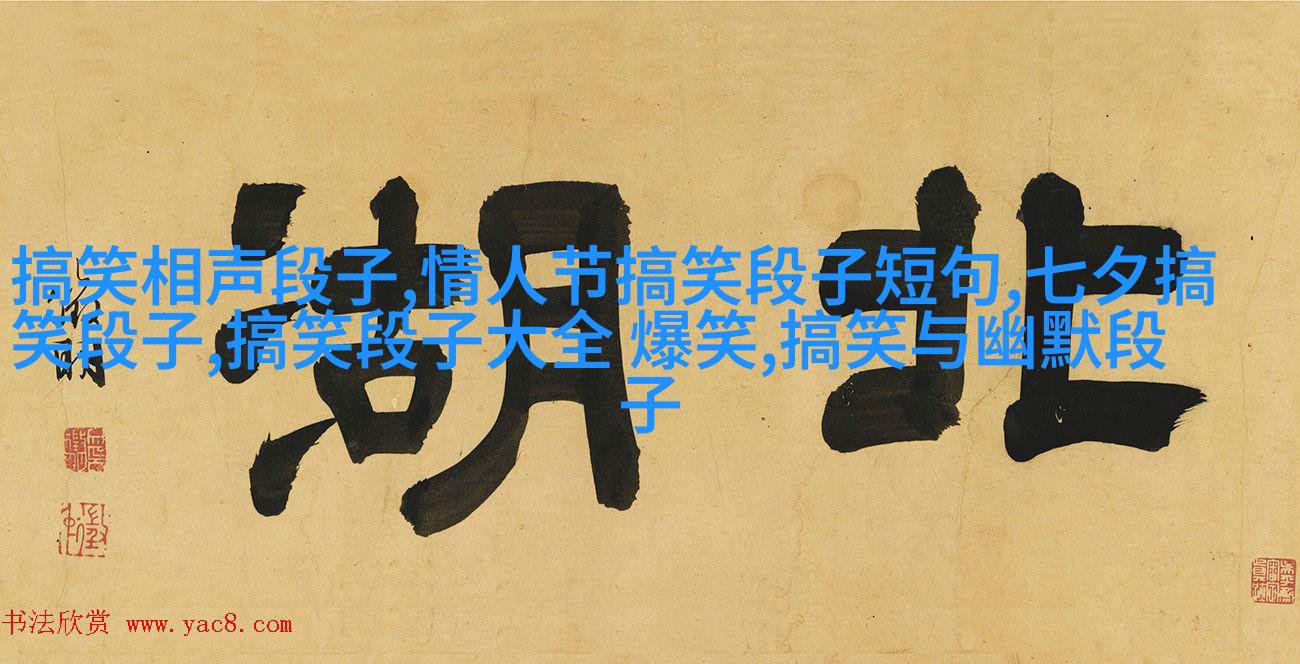 北湖
搞笑相声段子,情人节搞笑段子短句,七夕搞
笑段子,搞笑段子大全 爆笑,搞笑与幽默段
子
书法欣赏 www.yac8.com